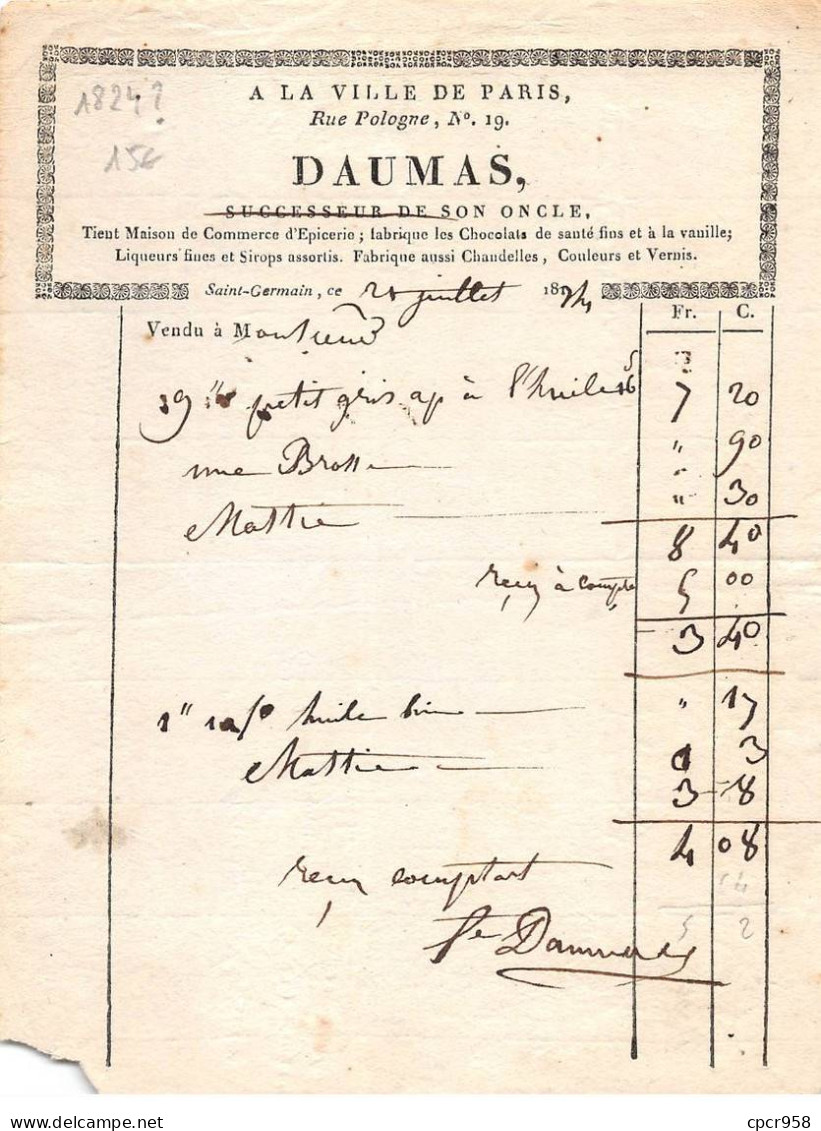 1824?
15€
A LA VILLE DE PARIS,
Rue Pologne, No. 19.
DAUMAS,
SUCCESSEUR DE SON ONCLE,
Tient Maison de Commerce d'Epicerie; fabrique les Chocolats de santé fins et à la vanille;
Liqueurs fines et Sirops assortis. Fabrique aussi Chandelles, Couleurs et Vernis.
Saint-Germain, ce juillet 18
Fr. C.
Vendu à Monsieur
petit gris à l'huile 7 20
une Brosse " 90
Mastic " 30
8 40
reçu à compte 5 00
3 40
huile " 17
Mastic 3
3 18
4 08
reçu comptant
5 2
Daumas
Delcampe.net
cpcr958